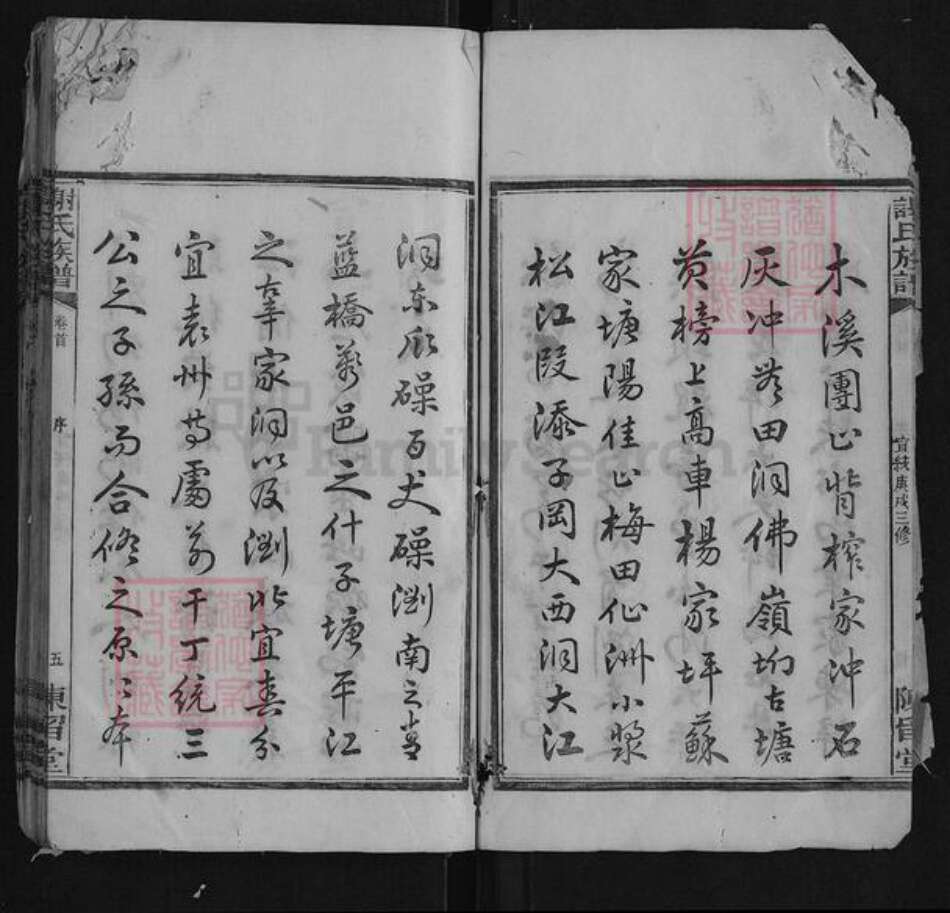 謝氏族譜
宣統庚戌三修
陳留堂
木溪團止背榨家冲石
灰冲茶田洞佛嶺坳古塘
黄榜上高車楊家坪蘇
家塘陽佳止梅田仙洲小漿
松江段添子岡大西洞大江
洞東源磜百丈磜瀏南之青
藍橋萬邑之什子塘平江
之辜家洞以及瀏北宜春分
宜袁州等處萬千丁統三
公之子孫而合修之原原本
謝氏族譜
卷首
序
五
東留堂
FamilySearch